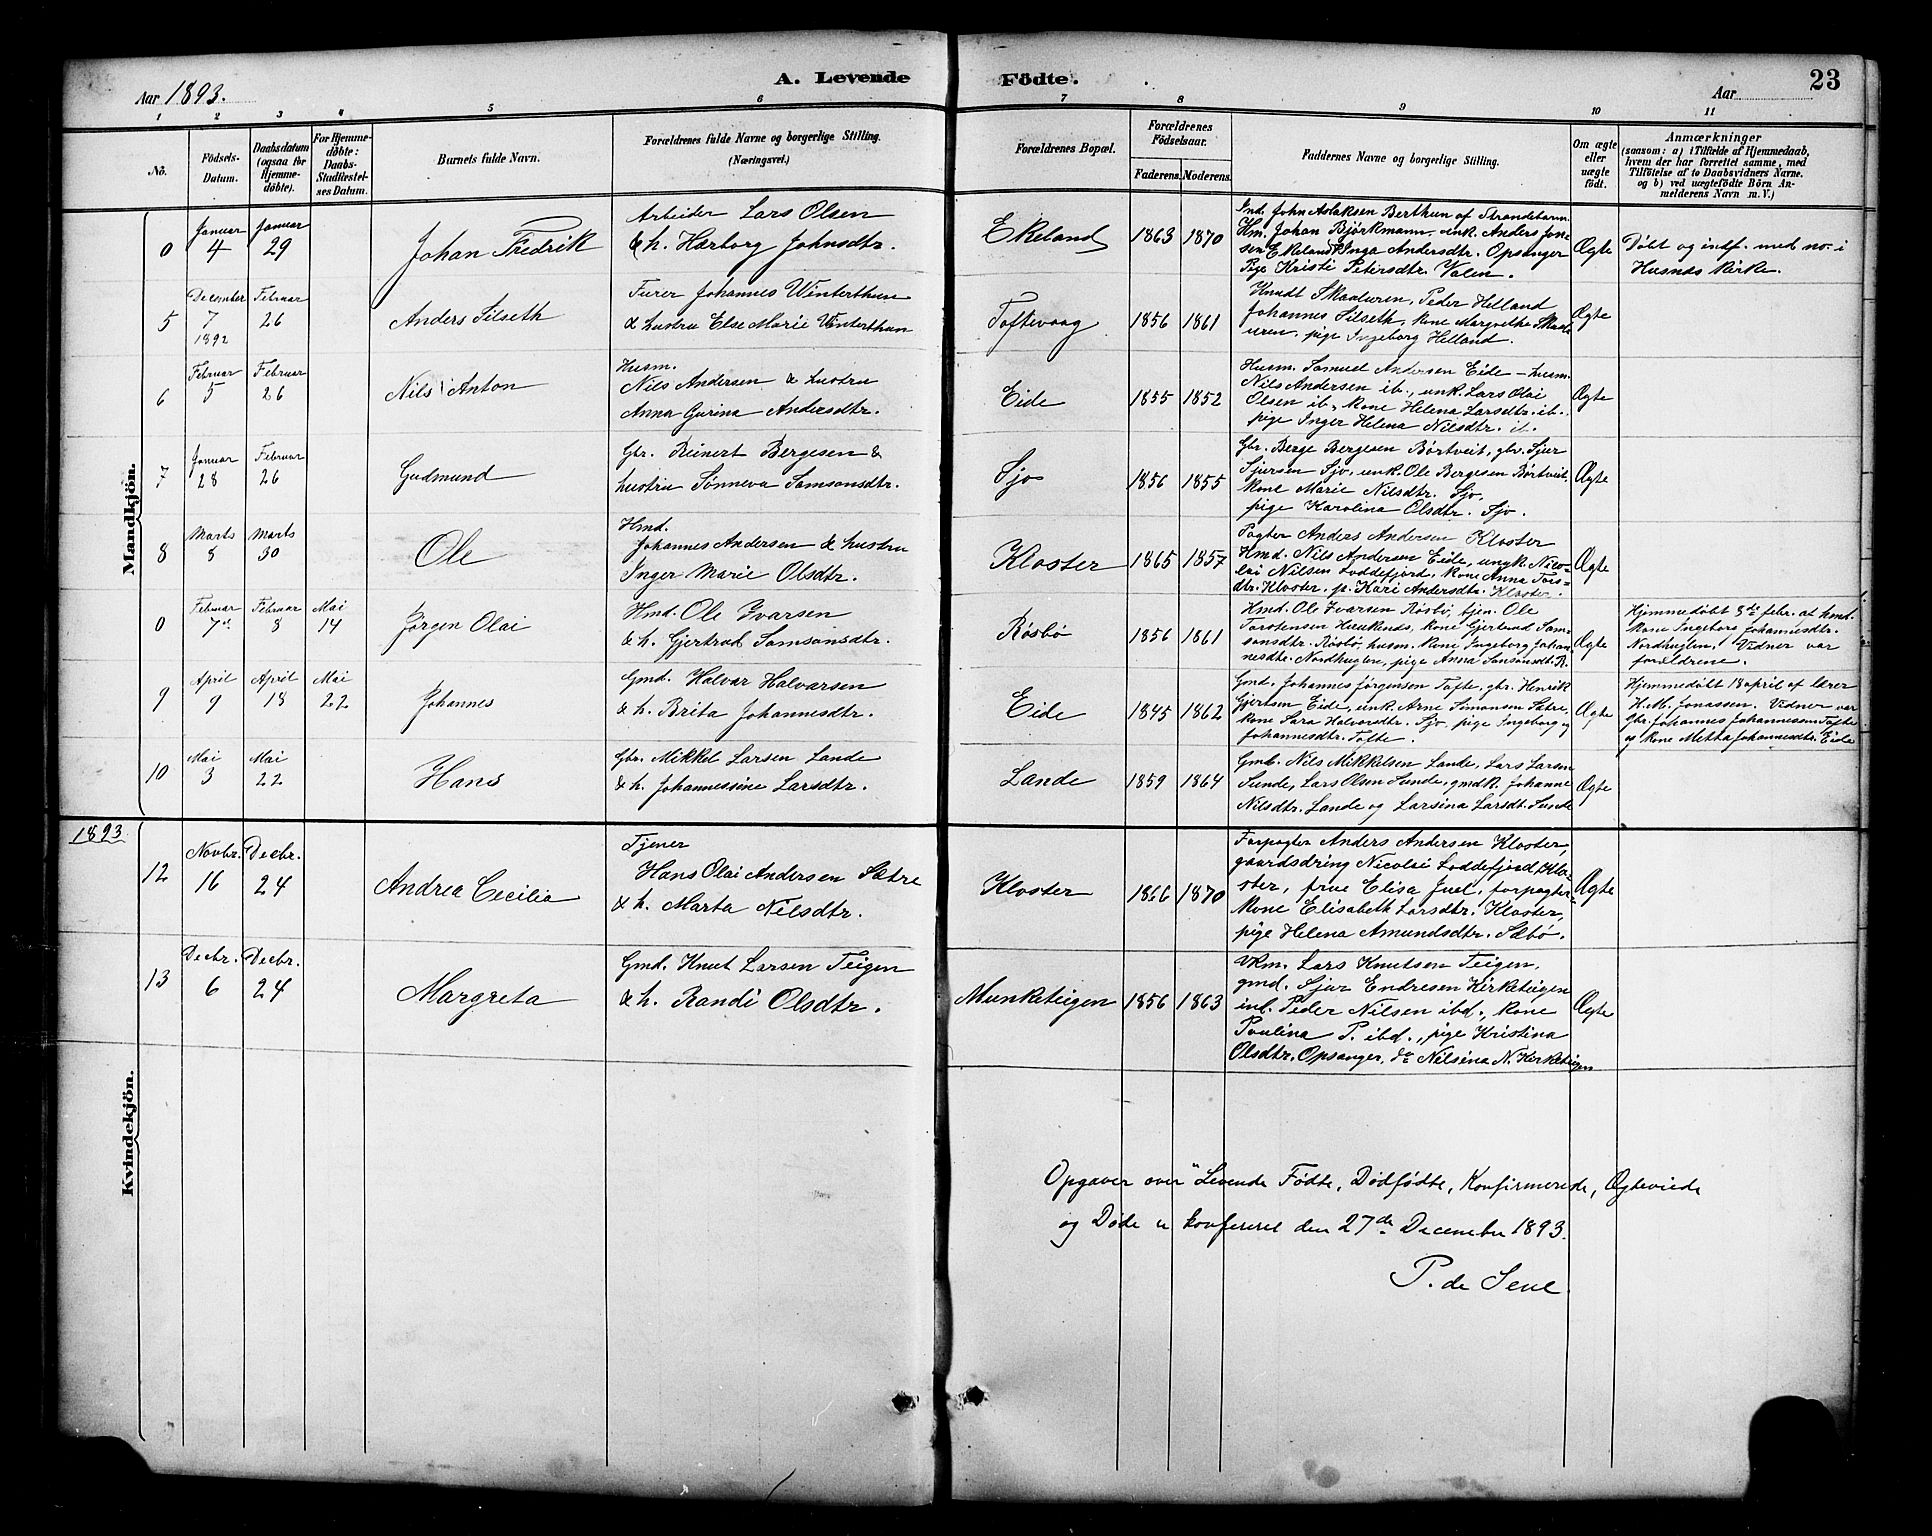 Aar 1893.
A. Levende Födte.
Aar
23
1 2 3 4 5 6 7 8 9 10 11
Nö.
Födsels-Datum.
Daabsdatum (ogsaa for Hjemme-döbte).
For Hjemme-döbte: Daabs-Stadfæstel-ses Datum.
Barnets fulde Navn.
Forældrenes fulde Navne og borgerlige Stilling. (Næringsvei.)
Forældrenes Bopæl.
Forældrenes Födselsaar.
Faderens. Moderens.
Faddernes Navne og borgerlige Stilling.
Om ægte eller uægte födt.
Anmærkninger
(saasom: a) i Tilfælde af Hjemmedaab,
hvem der har forrettet samme, med
Tilföielse af to Daabsvidners Navne.
og b) ved uægtefödte Börn An-
melderens Navn m. V.)
Mandkjön.
0
Januar 4
Januar 29
Johan Fredrik
Arbeider Lars Olsen
& h. Hærborg Johnsdtr.
Ekeland
1863 1870
Ind. John Aslaksen Berthun af Strandebarm
Hm. Johan Björkmann, unk. Anders Jon-
sen Ekeland, Inga Andersdtr. Opsanger
Pige Kristi Petersdtr. Valen.
Ægte
Døbt og indf. med no- i
Husnes kirke.
5
December 7 1892
Februar 26
Anders Silseth
Furer Johannes Winterthun
& hustru Else Marie Winterthun
Toftevaag
1856 1861
Knudt Skaaluren, Peder Helland
Johannes Silseth, kone Margrethe Skaal-
uren, pige Ingeborg Helland.
Ægte
6
Februar 5
Februar 26
Nils Anton
Husm.
Nils Andersen & hustru
Anna Gurina Andersdtr.
Eide
1855 1852
Husm. Samuel Andersen Eide - husm.
Nils Andersen ib., unk. Lars Olai
Olsen ib., kone Helena Larsdtr. ib.
pige Inger Helena Nilsdtr. ib.
Ægte
7
Januar 28
Februar 26
Gudmund
Gbr. Reinert Bergesen &
hustru Sønneva Samsonsdtr.
Sjo
1856 1855
Gbr. Berge Bergesen Børtveit, gbr. Sjur
Sjursen Sjo, unk. Ole Bergesen Børtveit.
kone Marie Nilsdtr. Sjo,
pige Karolina Olsdtr. Sjo.
Ægte
8
Marts 8
Marts 30
Ole
Hmd.
Johannes Andersen & hustru
Inger Marie Olsdtr.
Kloster
1865 1857
Pagter Anders Andersen Kloster
Hmd. Nils Andersen Eide, ungk. Nico-
lai Nilsen Loddefjord, kone Anna Tors-
dtr. Kloster, p. Kari Andersdtr. Kloster.
Ægte
0
Februar 7de
Februar 8
Mai 14
Jørgen Olai
Hmd. Ole Ivarsen
& h. Gjertrud Samsonsdtr.
Røsbø
1856 1861
Hmd. Ole Ivarsen Røsbø, tjen. Ole
Torstensen, kone Gjertrud Sam-
sonsdtr. Røsbø, husm. kone Ingeborg Johan-
nesdtr. Nordhuglen, pige Anna Samsonsdt. R.
Ægte
Hjemmedøbt 8de febr. af hmd.
kone Ingeborg Johannesdtr.
Nordhuglen. Vidner var
forældrene.
9
April 9
April 18
Mai 22
Johannes
Gmd. Halvor Halvorsen
& h. Brita Johannesdtr.
Eide
1845 1862
Gmd. Johannes Jørgensen Tofte, gbr. Henrik
Gjertsen Eide, unk. Arne Simonsen Sætre,
kone Sara Halvorsdtr. Sjo, pige Ingeborg
Johannesdtr. Tofte.
Ægte
Hjemmedøbt 18 april af lærer
H. M. Jonassen. Vidner var
gbr. Johannes Johannessen Tofte
og kone Metta Johannesdtr. Eide
10
Mai 3
Mai 22
Hans
Gbr. Mikkel Larsen Lande
& h. Johannessine Larsdtr.
Lande
1859 1864
Gmd. Nils Mikkelsen Lande, Lars Larsen
Sunde, Lars Olsen Sunde, gmdk. Johanne
Nilsdtr. Lande og Larsina Larsdt. Sunde
Ægte
1893
Kvindekjön.
12
Novbr. 16
Decbr. 24
Andrea Cecilia
Tjener
Hans Olai Andersen Sætre
& h. Marta Nilsdtr.
Kloster
1866 1870
Forpagter Anders Andersen Kloster,
gaardsdreng Nicolai Loddefjord, Klo-
ster, frue Elisa Juel, forpagter-
kone Elisabeth Larsdtr. Kloster,
pige Helena Amundsdtr. Sæbø.
Ægte
13
Decbr. 6
Decbr. 24
Margreta
Gmd. Knut Larsen Teigen
& h. Randi Olsdtr.
Munketeigen
1856 1863
Ukm. Lars Knutsen Teigen,
gmd. Sjur Endresen Kirketeigen
ind. Peder Nilsen ibd., kone
Paulina P. ibd., pige Kristina
Olsdtr. Opsanger, do Nilsina N. Kirketeigen
Ægte
Opgaver over Levende Fødte, Dødfødte, Konfirmerede, Ægteviede
og Døde er konfereret den 27de December 1893.
P. de Seue